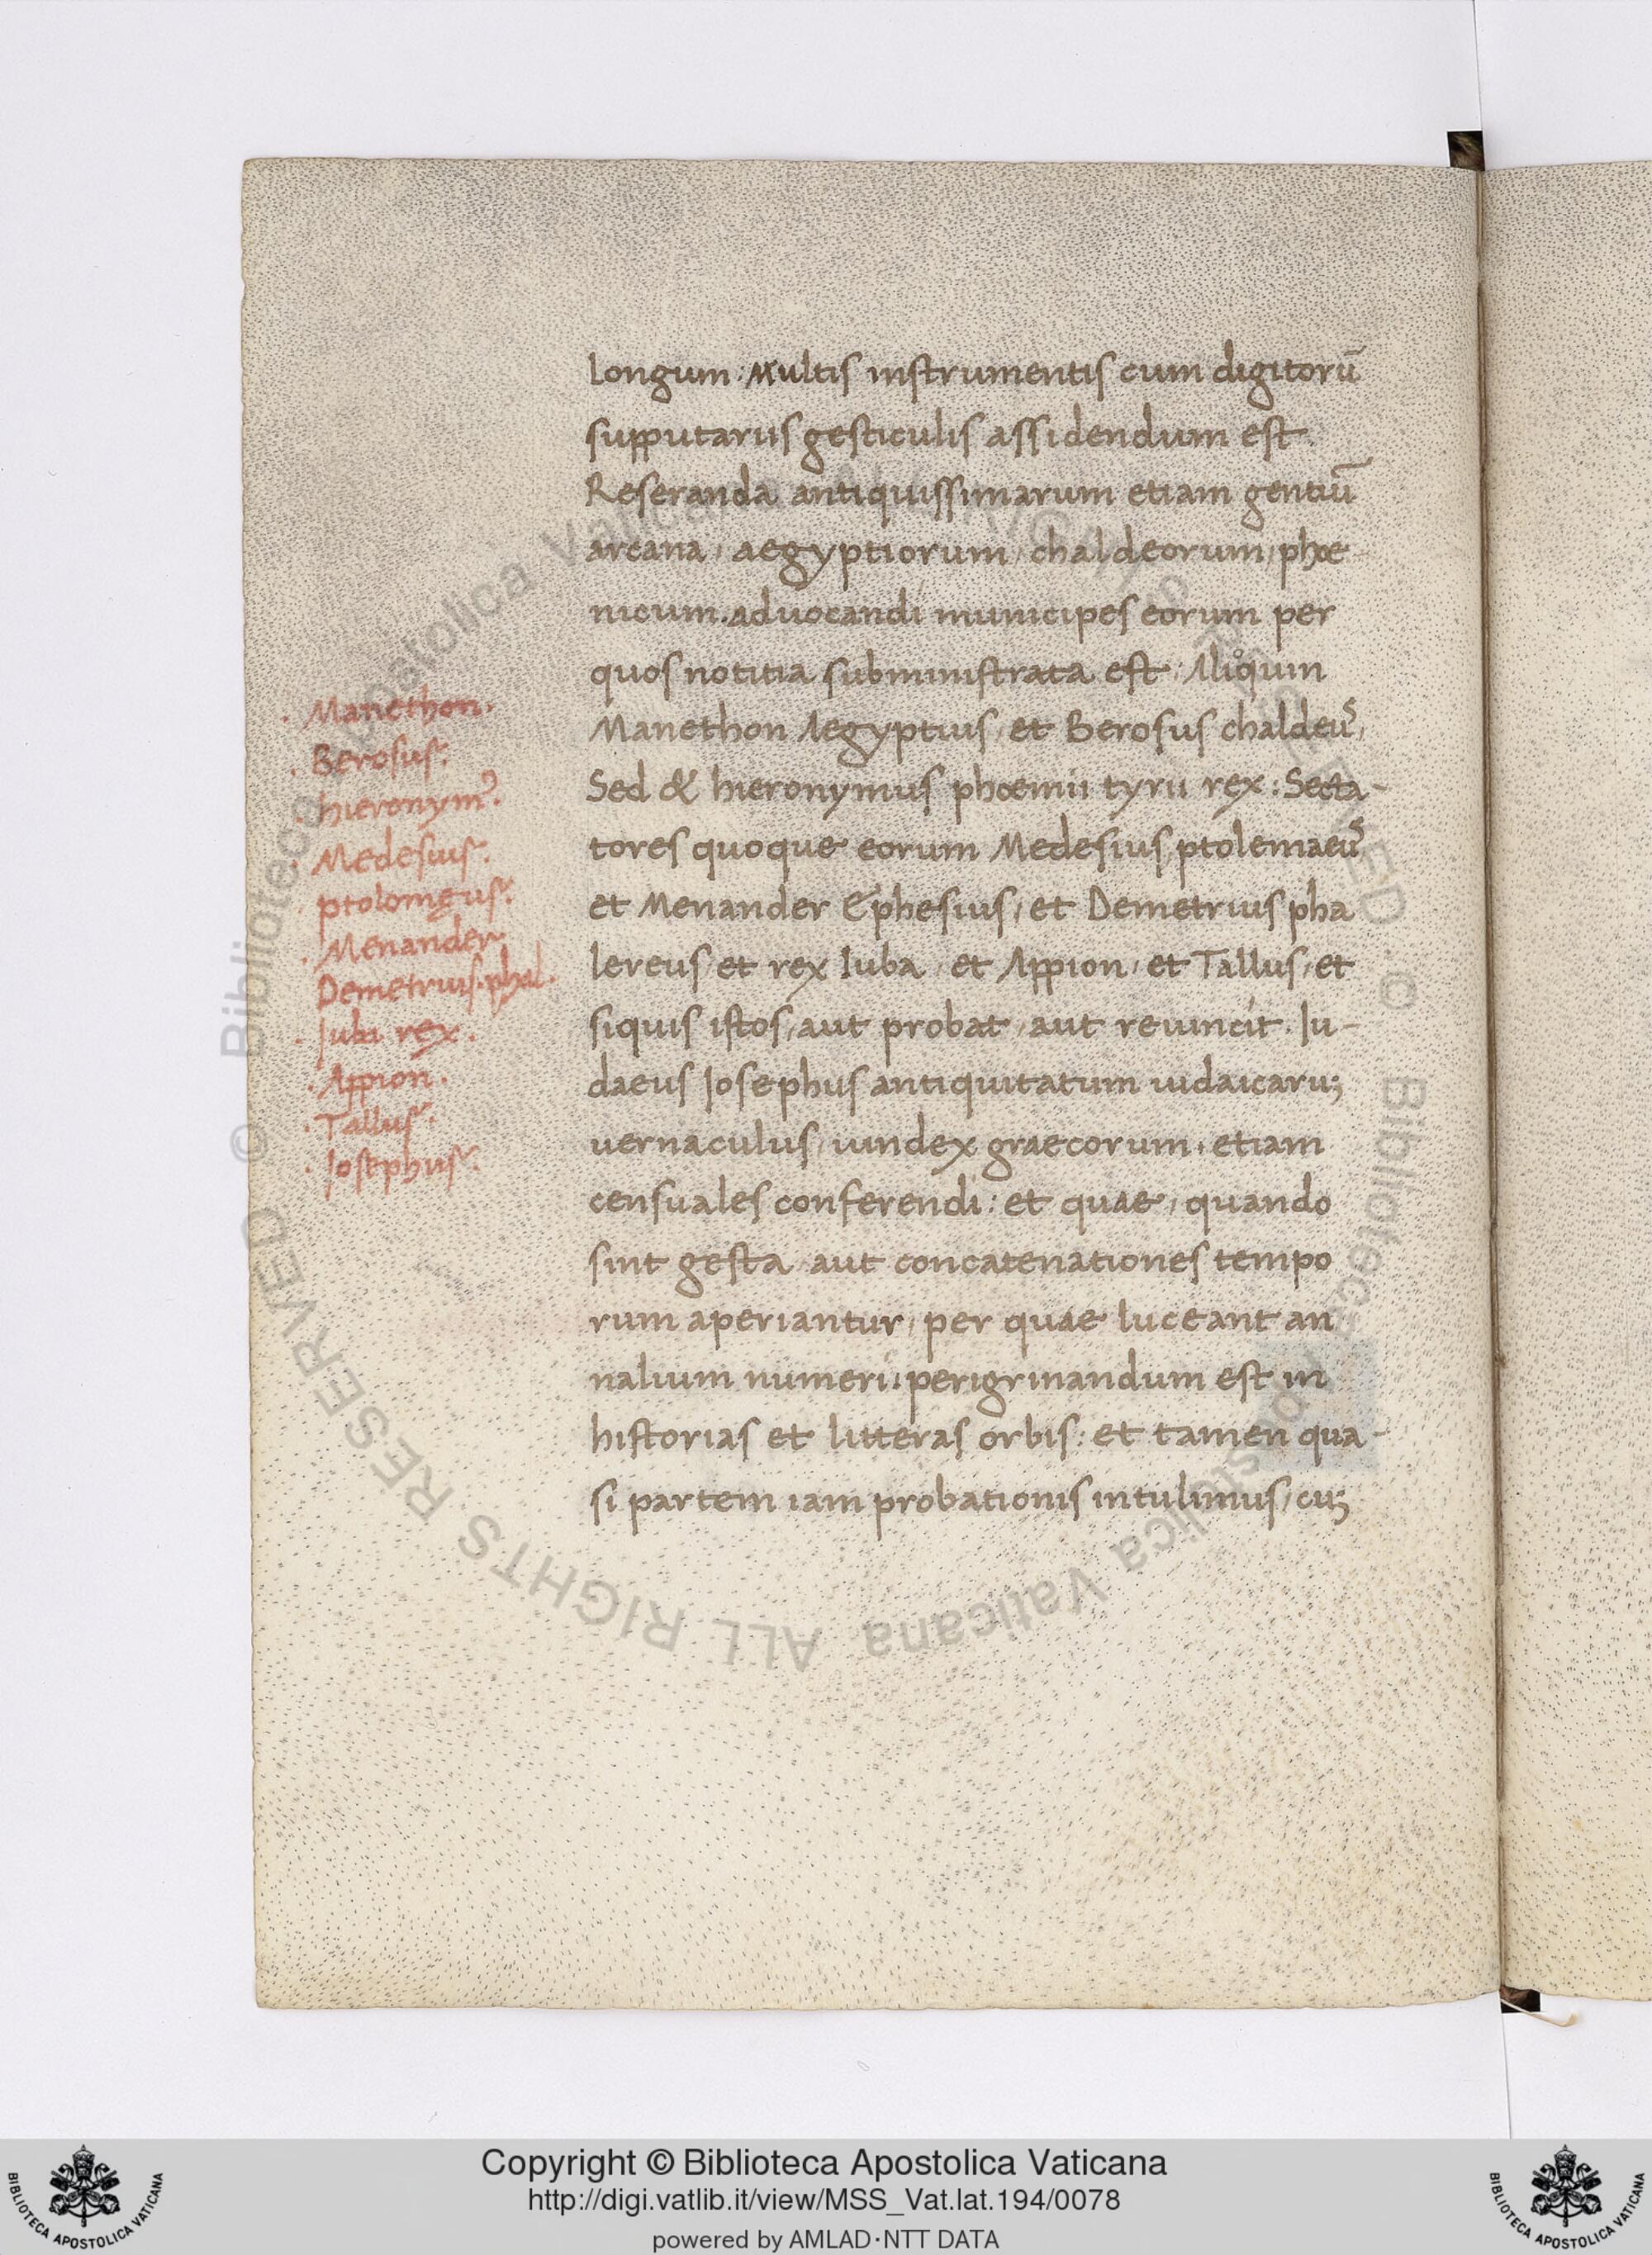 longum: Multis instrumentis cum digitorū
supputariis gesticulis assidendum est.
Reseranda antiquissimarum etiam gentiū
arcana, aegyptiorum, chaldeorum, phoe
nicum. aduocandi municipes eorum per
quos notitia subministrata est: Aliqͦum
Manethon Aegyptius, et Berosus chaldeus,
Sed & hieronymus phoenii tyrii rex: Secta-
tores quoque eorum Medesius ptolemaeus
et Menander Ephesius, et Demetrius pha
lereus et rex Iuba, et Appion, et Tallus, et
siquis istos, aut probat, aut reuincit. Iu-
daeus Iosephus antiquitatum iudaicaruꝫ
uernaculus, uindex graecorum, etiam
censuales conferendi: et quae, quando
sint gesta aut concatenationes tempo
rum aperiantur, per quae luceant an
nalium numeri. perigrinandum est in
historias et litteras orbis: et tamen qua-
si partem iam probationis intulimus, cuꝫ
. Manethon.
. Berosus.
. hieronymꝰ.
. Medesius.
. ptolomęus.
. Menander.
Demetrius. phal.
. Iuba rex.
. Appion.
. Tallus.
. Iosephus.
© Biblioteca Apostolica Vaticana ALL RIGHTS RESERVED
Copyright © Biblioteca Apostolica Vaticana
http://digi.vatlib.it/view/MSS_Vat.lat.194/0078
powered by AMLAD·NTT DATA
BIBLIOTECA APOSTOLICA VATICANA
BIBLIOTECA APOSTOLICA VATICANA